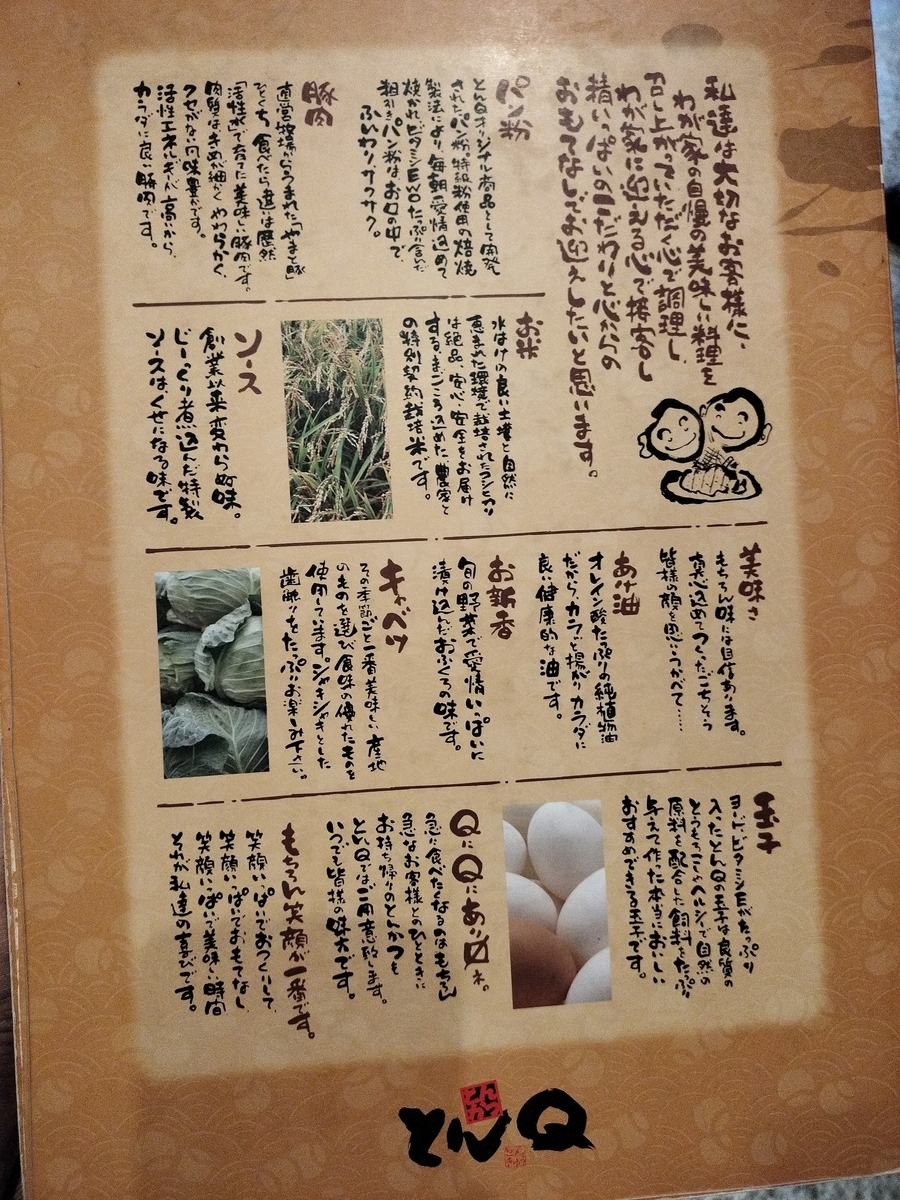 私達は大切なお客様に、
わが家の自慢の美味しい料理を
召し上がっていただく心で調理し、
わが家に迎える心で接客し
精いっぱいのこだわりと心からの
おもてなしでお迎えしたいと思います。
パン粉
とんQオリジナル商品として開発
されたパン粉。特級粉使用の焙焼
製法により、毎朝愛情込めて
焼かれ、ビタミンEWOたっぷに含んだ
粗引きパン粉はお口の中で、
ふんわり、サクサク。
豚肉
直営牧場からうまれた「やまと豚」
ひとくち食べたら違いは歴然
「活性水」で育てた美味しい豚肉です。
肉質はきめが細かくやわらかく、
クセがなく風味豊かです。
活性エネルギーが高いから、
カラダに良い豚肉です。
お米
水はけの良い土壌と自然に
恵まれた環境で栽培されたコシヒカリ
は絶品、安心・安全をお届け
する、まごころ込めた、農家と
の特別契約栽培米です。
ソース
創業以来変わらぬ味。
じーっくり煮込んだ特製
ソースは、くせになる味です。
美味さ
もちろん味には自信あります。
真心込めてつくったごちそう
皆様の顔を思いうかべて……
あげ油
オレイン酸たっぷりの純植物油
だから、カラッと揚がりカラダに
良い健康的な油です。
お新香
旬の野菜で愛情いっぱいに
漬け込んだおふくろの味です。
キャベツ
その季節ごと一番美味しい産地
のものを選び食味の優れたものを
使用しています。シャキシャキとした
歯触りをたっぷりお楽しみ下さい。
玉子
ヨード、ビタミンEがたっぷり
入ったとんQの玉子は良質の
とうもろこしやヘルシーで自然の
原料を配合した飼料をたっぷり
与えて作った本当においしい
おすすめできる玉子です。
QにQにあり〼ネ。
急に食べたくなるのはもちろん
急なお客様とのひとときに
お持ち帰りのとんかつを
とんQではご用意致します。
いつでも皆様の味方です。
もちろん笑顔が一番です。
笑顔いっぱいでおつくりして、
笑顔いっぱいでおもてなし、
笑顔いっぱいで美味しい時間
それが私達の喜びです。
とんQ